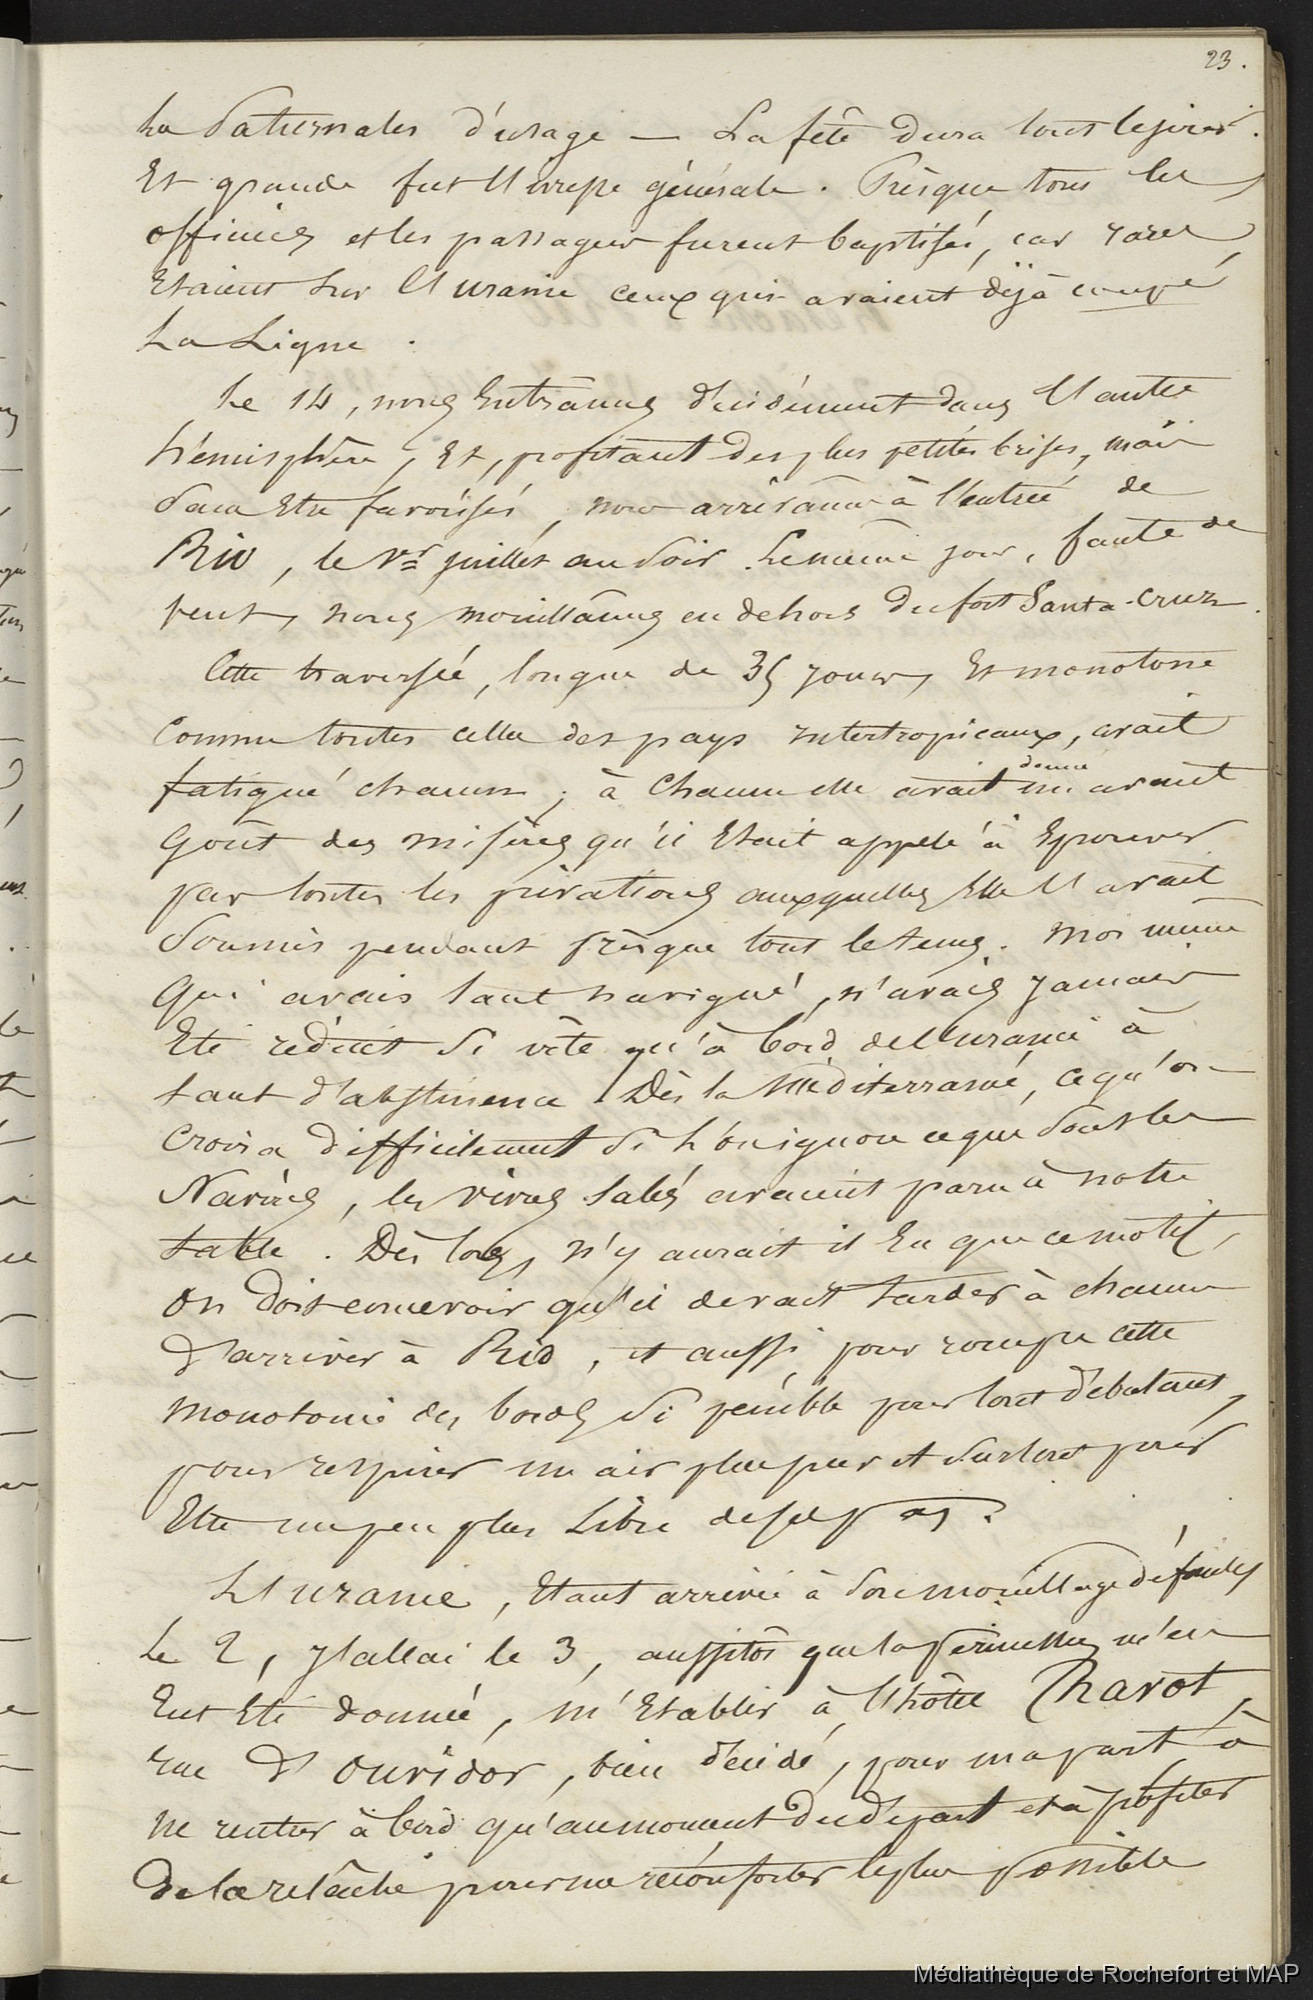 23.
les Saturnales d'usage — La fête dura tout le jour.
Et grande fut l'ivresse générale. Prèsque tous les
officiers et les passagers furent baptisés, car rares
Etaient sur l'Uranie ceux qui avaient déjà coupé
La Ligne.
Le 14, nous Entrâmes décidément dans l'autre
hémisphère, Et, profitant des plus petites brises, mais
Sans Etre favorisés, nous arrivâmes à l'entrée de
Rio, le 1er juillet au soir. Le même jour, faute de
vent, nous mouillâmes en dehors du fort Santa-Cruz.
Cette traversée, longue de 35 jours, Et monotone
Comme toutes celles des pays intertropicaux, avait
fatigué chacun; à Chacun elle avait donné un avant
Goût des misères qu'il Etait appelé à Eprouver
par toutes les privations auxquelles Elle l'avait
Soumis pendant prèsque tout le temps. Moi même
Qui avais tant navigué, n'avais jamais
Eté réduit si vîte qu'à bord de l'Uranie à
tant d'abstinence. Dès la Méditerranée, ce qu'on
Croira difficilement si l'on ignore ce que sont les
Navires, les vivres salés avaient paru à notre
table. Dès lors, n'y aurait il Eu que ce motif,
On doit concevoir qu'il devait tarder à chacun
d'arriver à Rio, et aussi pour rompre cette
monotonie des bords si pénible pour tout débutant,
pour respirer un air plus pur et surtout pour
Etre un peu plus Libre de ses pas.
L'Uranie, Etant arrivée à son mouillage définitif
Le 2, j'allai le 3, aussitôt que la permission m'en
Eut Eté donnée, m'Etablir à l'hôtel Pharot,
rue d'Ouvidor, bien décidé, pour ma part à
ne rentrer à bord qu'au moment du départ et à profiter
de la relâche pour me réconforter le plus possible
Médiathèque de Rochefort et MAP